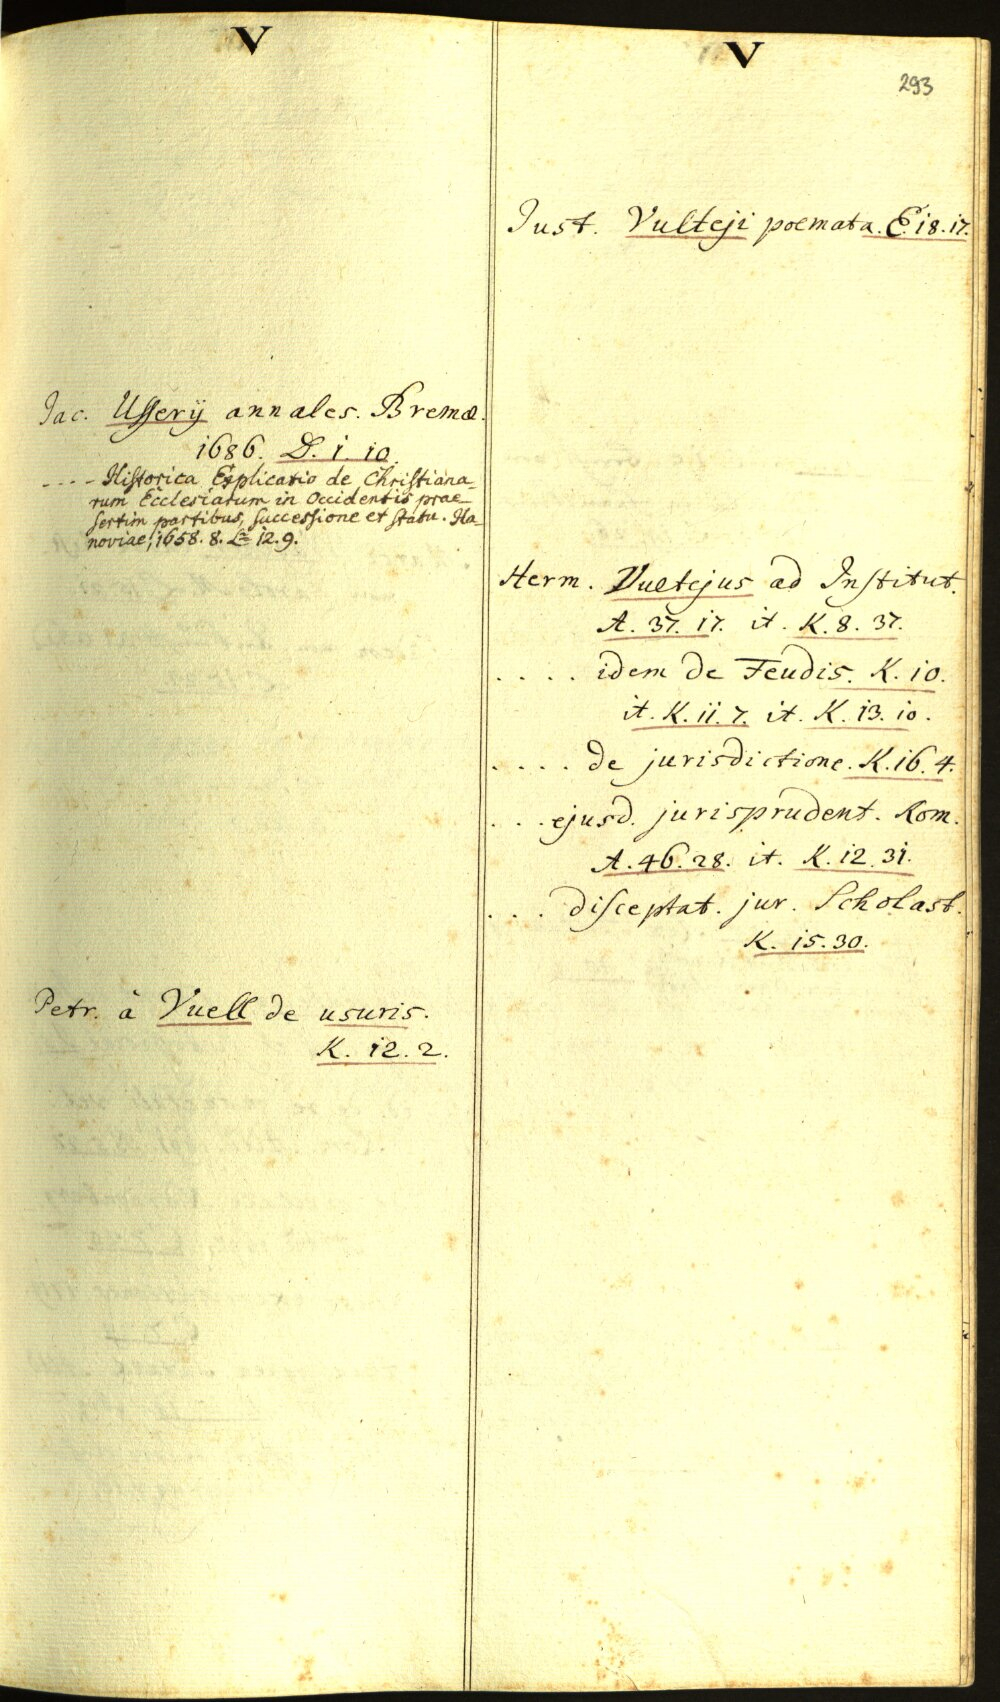 V
Jac. Usserij annales. Bremæ.
1686. D. 1. 10.
- - - - Historica Explicatio de Christiana-
rum Ecclesiarum in Occidentis prae-
sertim partibus, successione et statu. Ha-
noviae, 1658. 8. L= 12. 9.
Petr. à Vuell de usuris.
K. 12. 2.
V
293
Just. Vulteji poemata. E. 18. 17.
Herm. Vultejus ad Institut.
A. 37. 17. it. K. 8. 37.
. . . . idem de Feudis. K. 10.
it. K. 11. 7. it. K. 13. 10.
. . . . de jurisdictione. K. 16. 4.
. . . ejusd. jurisprudent. Rom.
A. 46. 28. it. K. 12. 31.
. . . disceptat. jur. Scholast.
K. 15. 30.